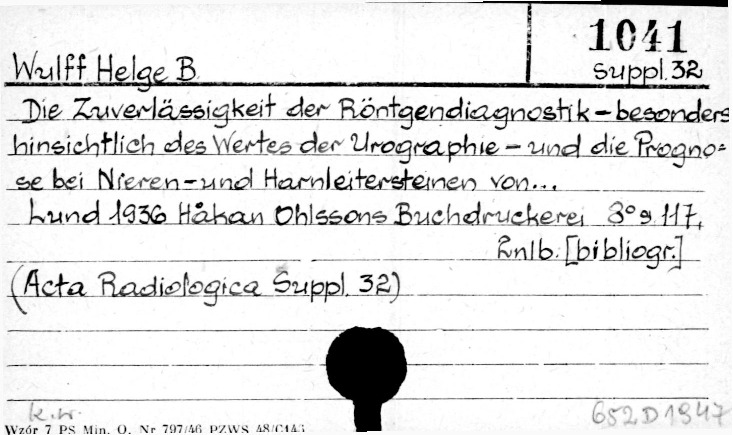 1041
Suppl. 32
Wulff Helge B.
Die Zuverlässigkeit der Röntgendiagnostik – besonders
hinsichtlich des Wertes der Urographie – und die Progno=
se bei Nieren- und Harnleitersteinen von...
Lund 1936 Håkan Ohlssons Buchdruckerei 8° s. 117,
[bibliogr.]
(Acta Radiologica Suppl. 32)
k.w.
652 D 1947
Wzór 7 PS Min. O. Nr 797/46 PZWS 48/C143